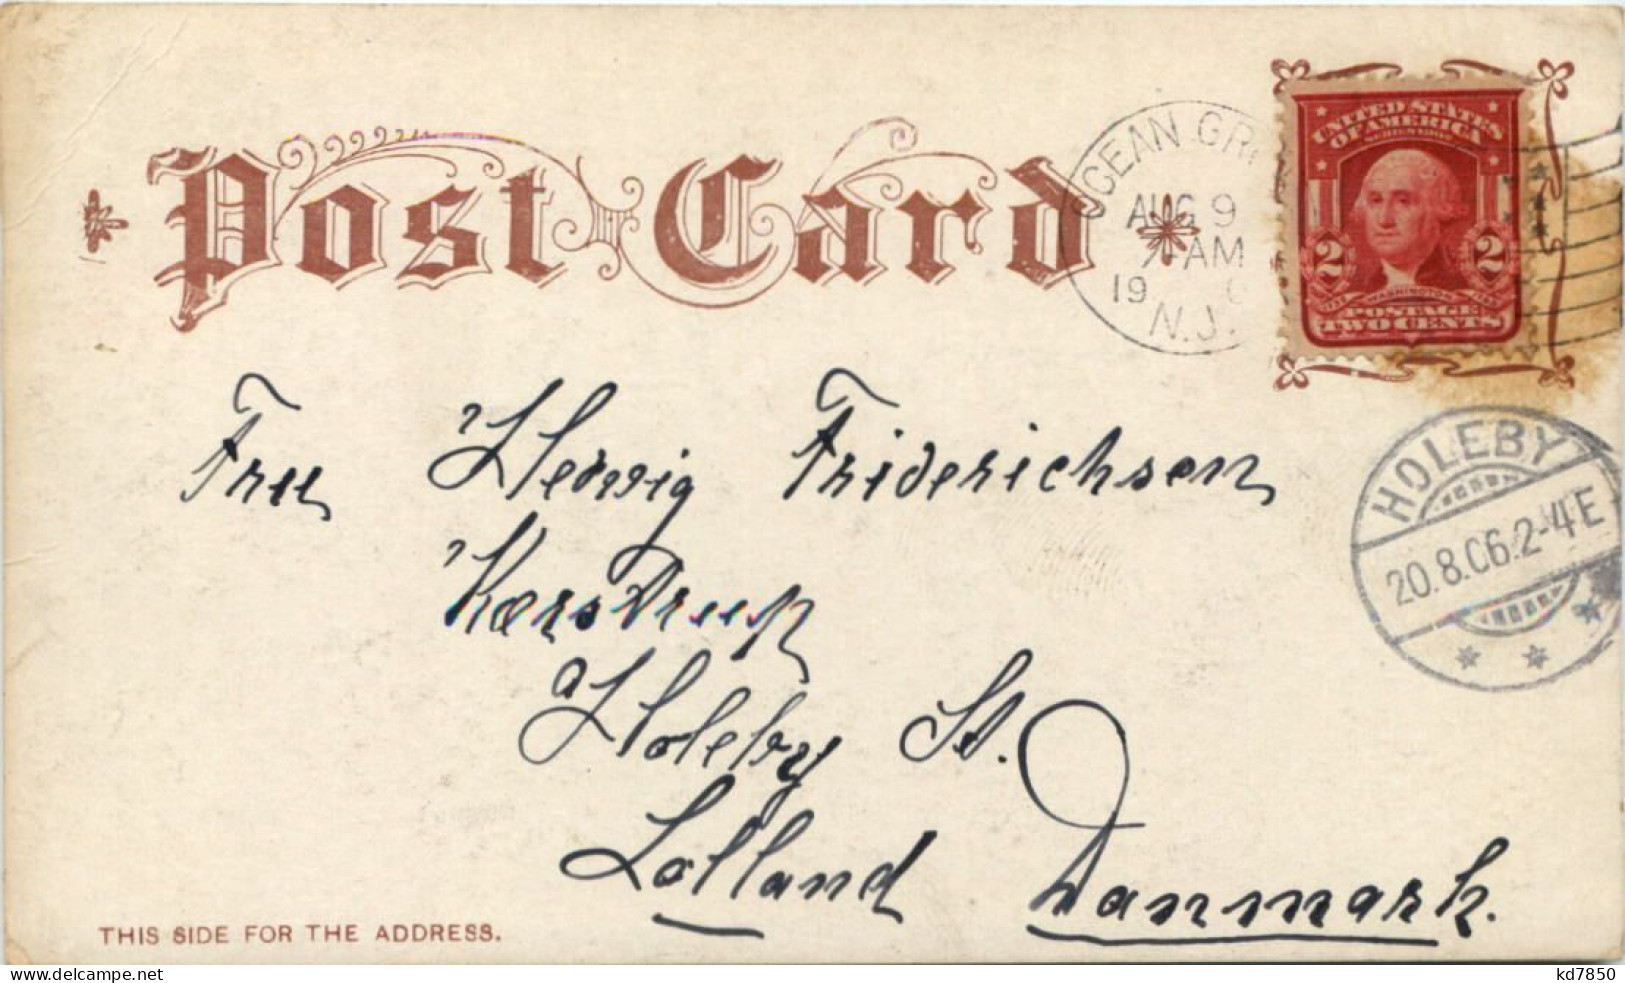 Post Card
OCEAN GR
AUG 9
7-AM
19
N.J.
UNITED STATES
OF AMERICA
SERIES 1902
2 2
1732 WASHINGTON 1799
POSTAGE
TWO CENTS
HOLEBY
20.8.06.2-4E
Fru Hedwig Friderichsen
Kærstrup
Holeby St.
Lolland Danmark.
THIS SIDE FOR THE ADDRESS.
delcampe.net
kd7850